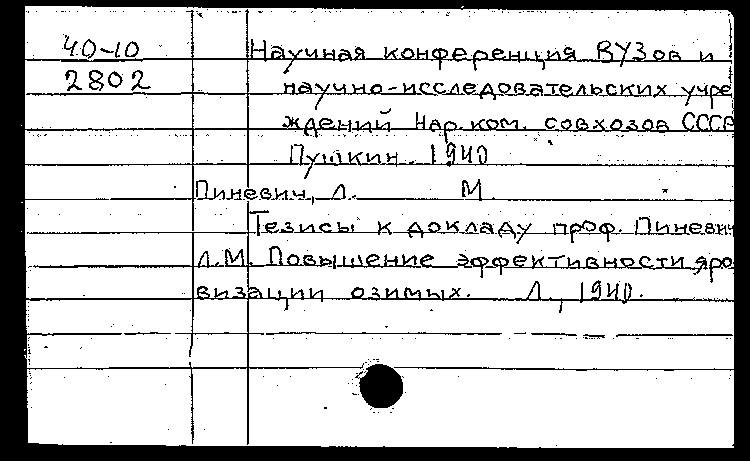 40-10
2802
Научная конференция ВУЗов и
научно-исследовательских учре
ждений Нар.ком. совхозов СССР
Пушкин. 1940
Пиневич, Л. М.
Тезисы к докладу проф. Пиневич
Л.М. Повышение эффективности яро
визации озимых. Л., 1940.